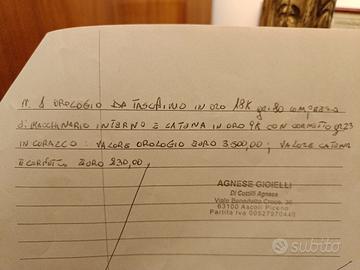 N. 1 OROLOGIO DA TASCHINO IN ORO 18K gr. 80 COMPRESO
DI MACCHINARIO INTERNO E CATENA IN ORO 9K CON CORNETTO gr 23
IN CORALLO: VALORE OROLOGIO EURO 3.500,00; VALORE CATENA
E CORNETTO EURO 230,00,
AGNESE GIOIELLI
Di Cottilli Agnese
Viale Benedetto Croce, 36
63100 Ascoli Piceno
Partita Iva 00527970440
subito